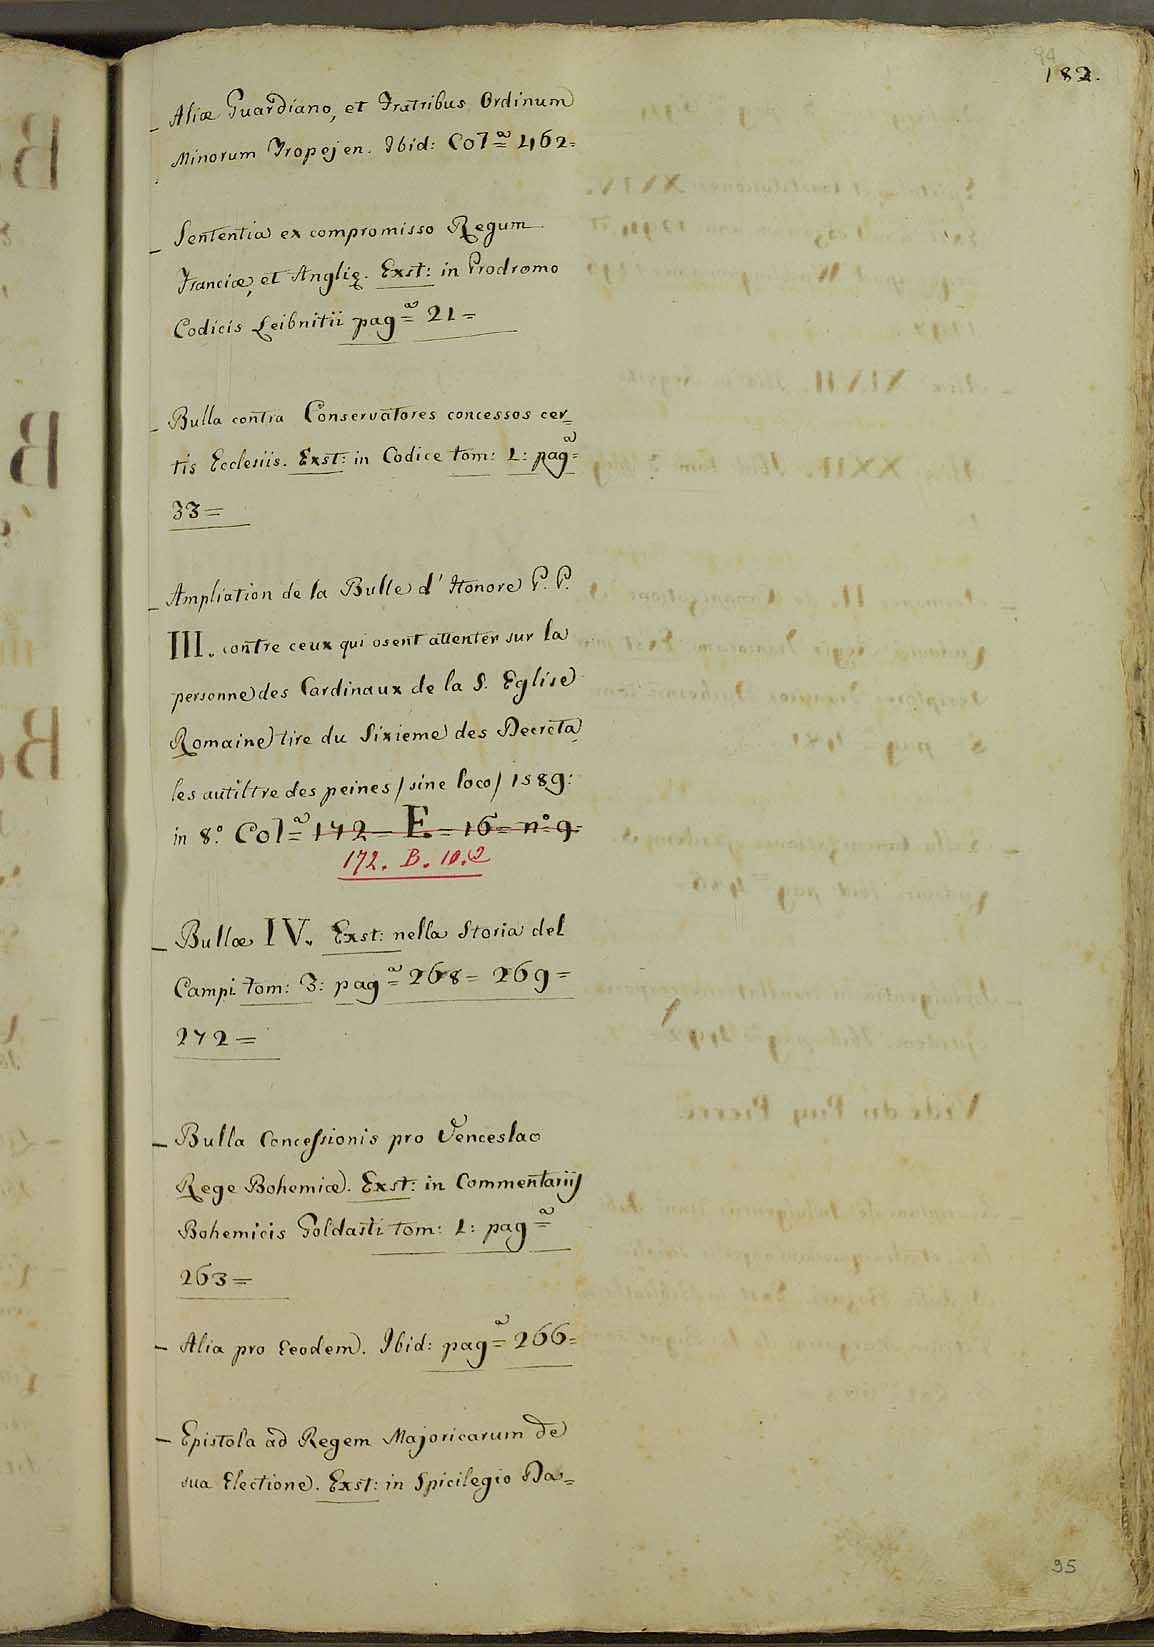 94
182.
– Aliæ Guardiano, et Fratribus Ordinum
Minorum Tropejen. Ibid: Colª= 462=
– Sententia ex compromisso Regum
Franciæ, et Anglię. Exst: in Prodromo
Codicis Leibnitii pagª= 21=
– Bulla contra Conservatores concessos cer=
tis Ecclesiis. Exst: in Codice tom: 1: pagª=
33=
– Ampliation de la Bulle d' Honore P. P.
III. contre ceux qui osent attenter sur la
personne des Cardinaux de la S. Eglise
Romaine tire du Sixieme des Decreta
les autiltre des peines / sine loco / 1589:
in 8.º Colª= 172 – E. = 16 = nº 9=
172. B. 10.2
– Bullæ IV. Exst: nella Storia del
Campi tom: 3: pagª= 268= 269=
272=
– Bulla Concessionis pro Venceslao
Rege Bohemiæ. Exst: in Commentariis
Bohemicis Goldasti tom: 1: pagª=
263=
– Alia pro Eeodem. Ibid: pagª= 266=
– Epistola ad Regem Majoricarum de
sua Electione. Exst: in Spicilegio Da=
95